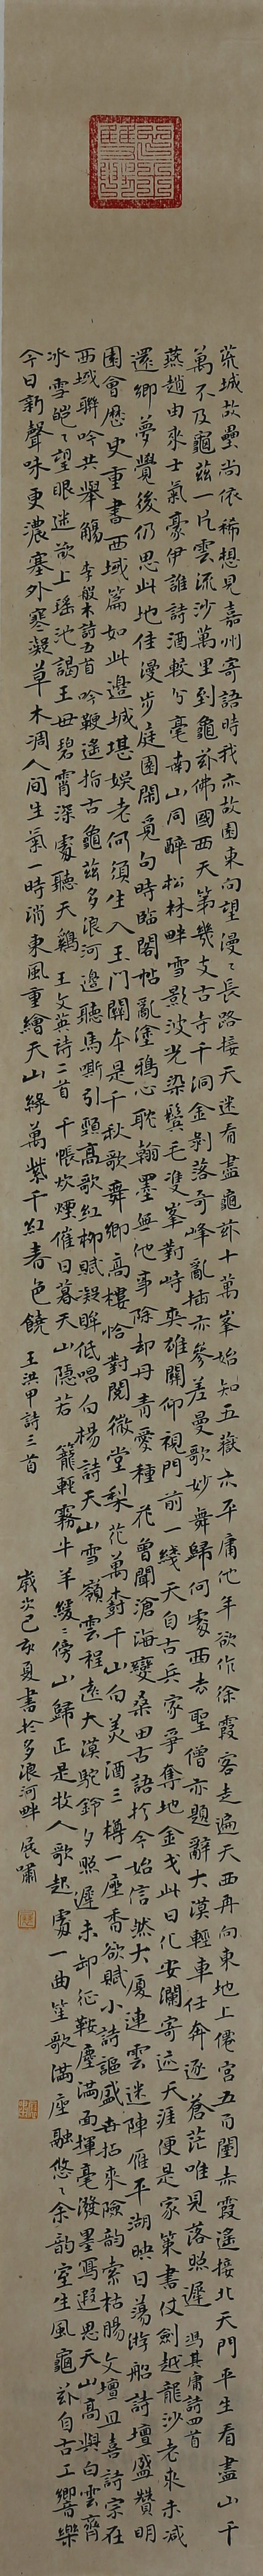 荒城故壘尚依稀想見嘉州寄語時我亦故園東向望漫々長路接天迷看盡龜茲十萬峯始知五嶽亦平庸他年欲作徐霞客走遍天西再向東地上僊宮五百闉赤霞遙接北天門平生看盡山千
萬不及龜茲一片雲流沙萬里到龜茲佛國西天第幾支古寺千洞金剝落奇峰亂插亦參差曼歌妙舞歸何處西去聖僧亦題辭大漠輕車任奔逐蒼茫唯見落照遲 馮其庸詩四首
燕趙由來士氣豪伊誰詩酒較分毫南山同醉松林畔雪影波光染鬢毛雙峯對峙奕雄關仰視門前一綫天自古兵家爭奪地金戈此日化安瀾寄迹天涯便是家策書仗劍越龍沙老來未減
還鄉夢覺後仍思此地佳漫步庭園閑覓句時臨閣帖亂塗鴉心耽翰墨無他事除却丹青愛種花曾聞滄海變桑田古語於今始信然大厦連雲迷陣雁平湖映日蕩游船詩壇盛贊明
園會歷史重書西域篇如此邊城堪娛老何須生入玉門關本是千秋歌舞鄉高樓恰對閱微堂梨花萬樹千山白美酒三樽一座香欲賦小詩謳盛世拈來險韵索枯腸文壇且喜詩宗在
西域聯吟共舉觴 李般木詩五首 吟鞭遙指古龜茲多浪河邊聽馬嘶引頸高歌紅柳賦凝眸低唱白楊詩天山雪嶺雲程遠大漠駝鈴夕照遲未卸征鞍塵滿面揮毫潑墨寫遐思天山高與白雲齊
冰雪皚々望眼迷欲上瑤池謁王母碧霄深處聽天鷄 王文英詩二首 千帳炊煙催日暮天山隱若籠輕霧牛羊緩々傍山歸正是牧人歌起處一曲笙歌滿座融悠々余韵室生風龜茲自古工音樂
今日新聲味更濃塞外寒凝草木凋人間生氣一時消東風重繪天山緣萬紫千紅春色饒 王洪甲詩三首 歲次己亥夏書於多浪河畔 展嘯